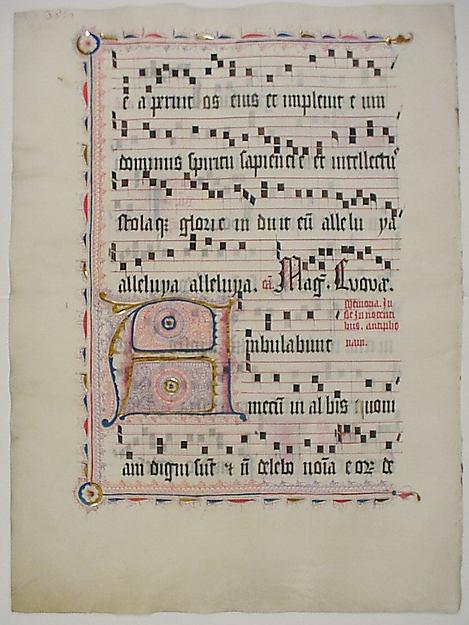 e aperuit os eius et impleuit e um
dominus spiritu sapiencie et intellectu
stola glorie in duit eū allelu ya
alleluya alleluya. Mag. Euouae.
Memoria. In
bus. antipho
nam.
Ambulabunt
mecū in albis quoni
am digni sūt & ñ delebo noīa eoꝝ de